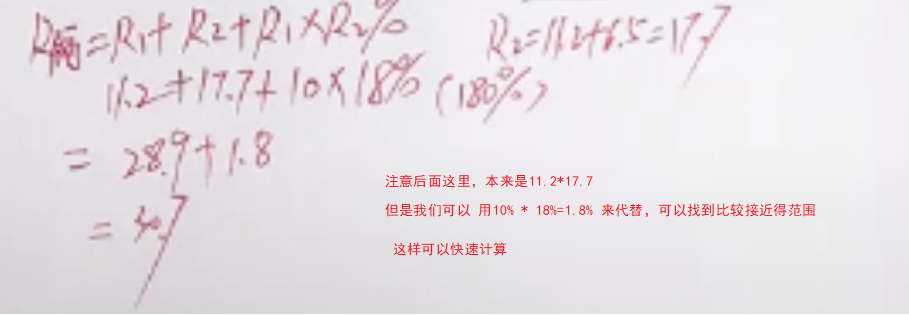 R两=R₁+R₂+R₁×R₂% R₂=11.2+6.5=17.7
11.2+17.7+10×18% (180%)
= 28.9+1.8
= 30.7
注意后面这里，本来是11.2*17.7
但是我们可以 用10% * 18%=1.8% 来代替，可以找到比较接近得范围
这样可以快速计算